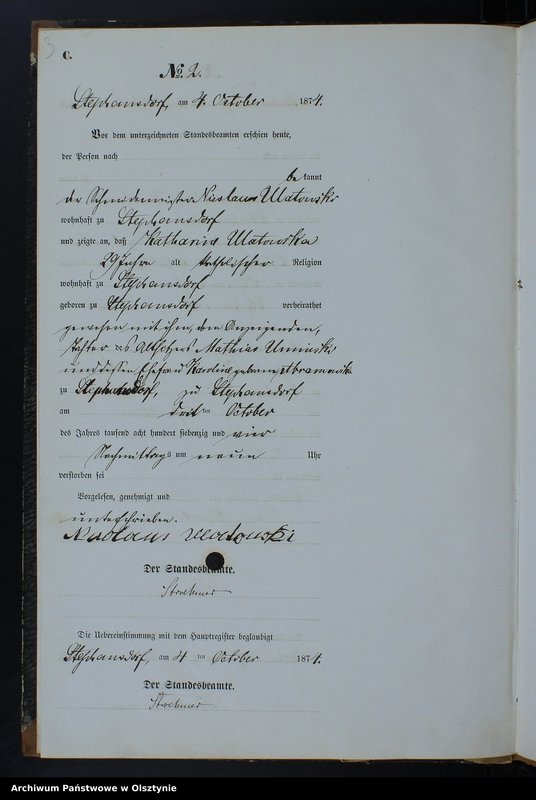 3
C.
No. 2.
Stephansdorf, am 4. October 1874.
Vor dem unterzeichneten Standesbeamten erschien heute,
der Person nach
be kannt
der Schmiedemeister Nicolaus Ulatowski
wohnhaft zu Stephansdorf
und zeigte an, daß Katharina Ulatowska
29 Jahre alt katholischer Religion
wohnhaft zu Stephansdorf
geboren zu Stephansdorf verheirathet
gewesen mit ihm, dem Anzeigenden,
Tochter des Altsitzers Mathias
und dessen Ehefrau geborene
zu Stephansdorf, zu Stephansdorf
am dritten October
des Jahres tausend acht hundert siebenzig und vier
Nachmittags um neun Uhr
verstorben sei
Vorgelesen, genehmigt und
unterschrieben.
Nicolaus
Der Standesbeamte.
Die Uebereinstimmung mit dem Hauptregister beglaubigt
Stephansdorf, am 4 ten October 1874.
Der Standesbeamte.
Archiwum Państwowe w Olsztynie